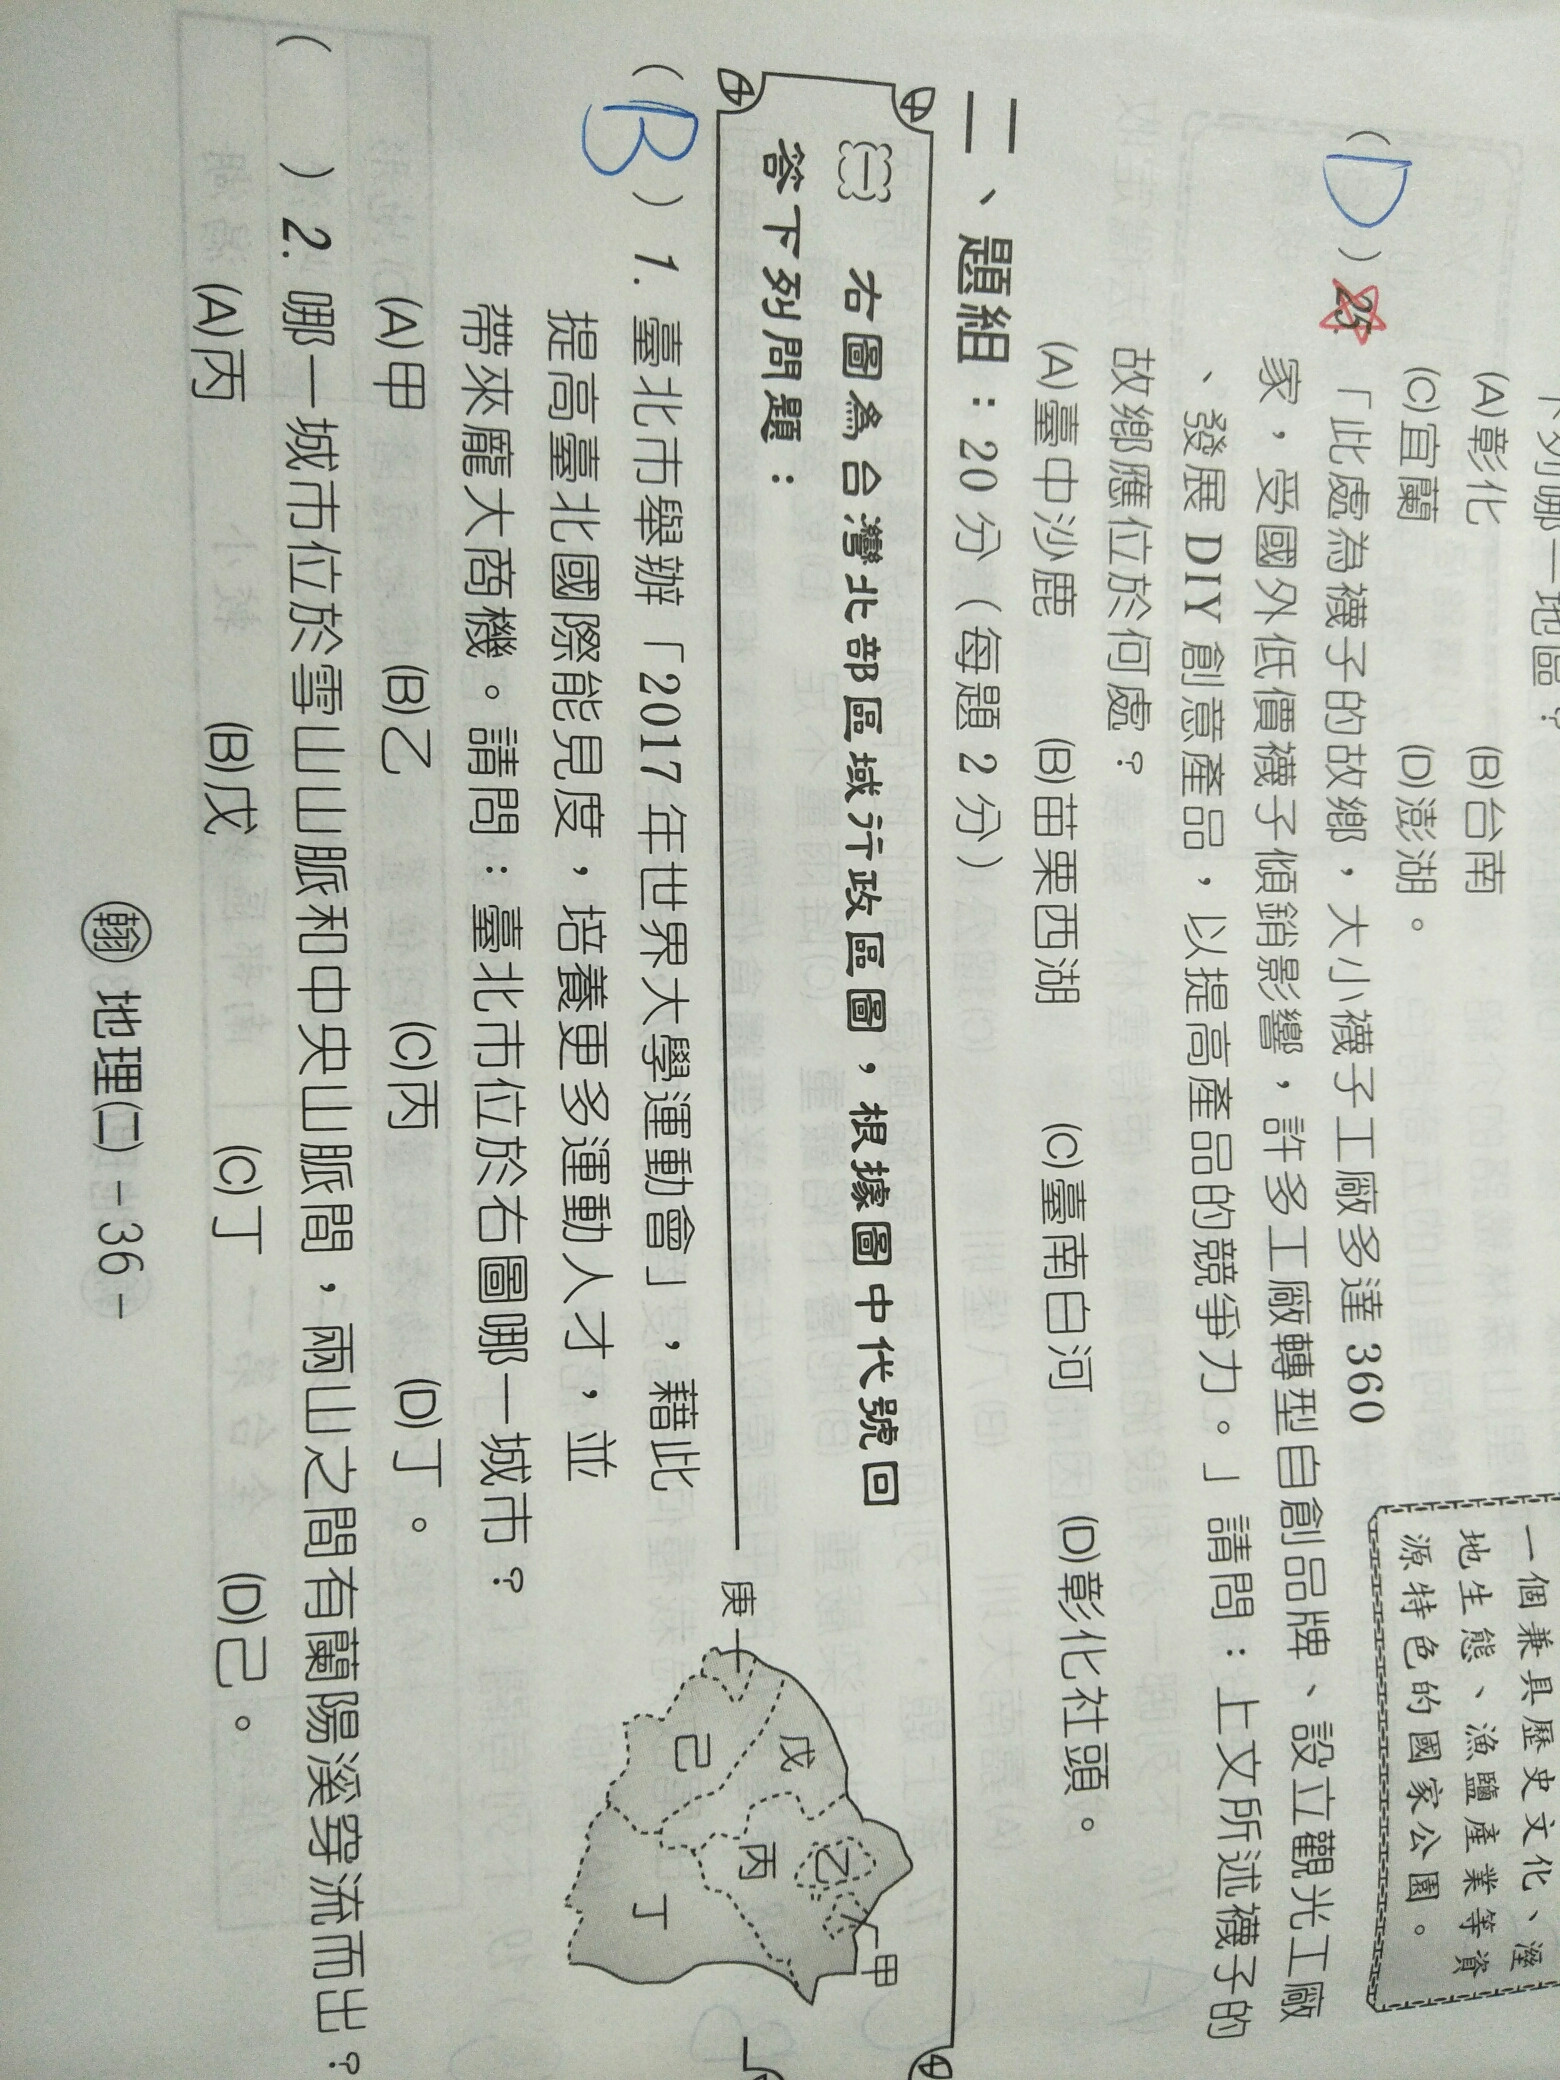 下列哪一地區？
(A)彰化 (B)台南
(C)宜蘭 (D)澎湖。
一個兼具歷史文化、溼
地生態、漁鹽產業等資
源特色的國家公園。
(D) 25. 「此處為襪子的故鄉，大小襪子工廠多達 360
家，受國外低價襪子傾銷影響，許多工廠轉型自創品牌、設立觀光工廠
、發展 DIY 創意產品，以提高產品的競爭力。」請問：上文所述襪子的
故鄉應位於何處？
(A)臺中沙鹿 (B)苗栗西湖 (C)臺南白河 (D)彰化社頭。
二、題組：20 分（每題 2 分）
㈠ 右圖為台灣北部區域行政區圖，根據圖中代號回
答下列問題：
(B) 1. 臺北市舉辦「2017 年世界大學運動會」，藉此
提高臺北國際能見度，培養更多運動人才，並
帶來龐大商機。請問：臺北市位於右圖哪一城市？
(A)甲 (B)乙 (C)丙 (D)丁。
庚
己
戊
丙
乙
甲
丁
( ) 2. 哪一城市位於雪山山脈和中央山脈間，兩山之間有蘭陽溪穿流而出？
(A)丙 (B)戊 (C)丁 (D)己。
翰 地理㈡ - 36 -